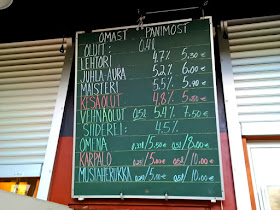 OMAST PANIMOST
OLUIT: 0.4l
LEHTORI 4.7% 5.30€
JUHLA-AURA 5.2% 6.00€
MAISTERI 5.5% 5.90€
KESÄOLUT 4.8% 5.80€
VEHNÄOLUT 0,5l 5.4% 7.50€
SIIDEREI: 4.5%
OMENA 5.50€ 0,5l/8.00€
KARPALO 5.00€ 0,5l/10.00€
MUSTAHERUKKA 5.00€ 0,5l/10.00€